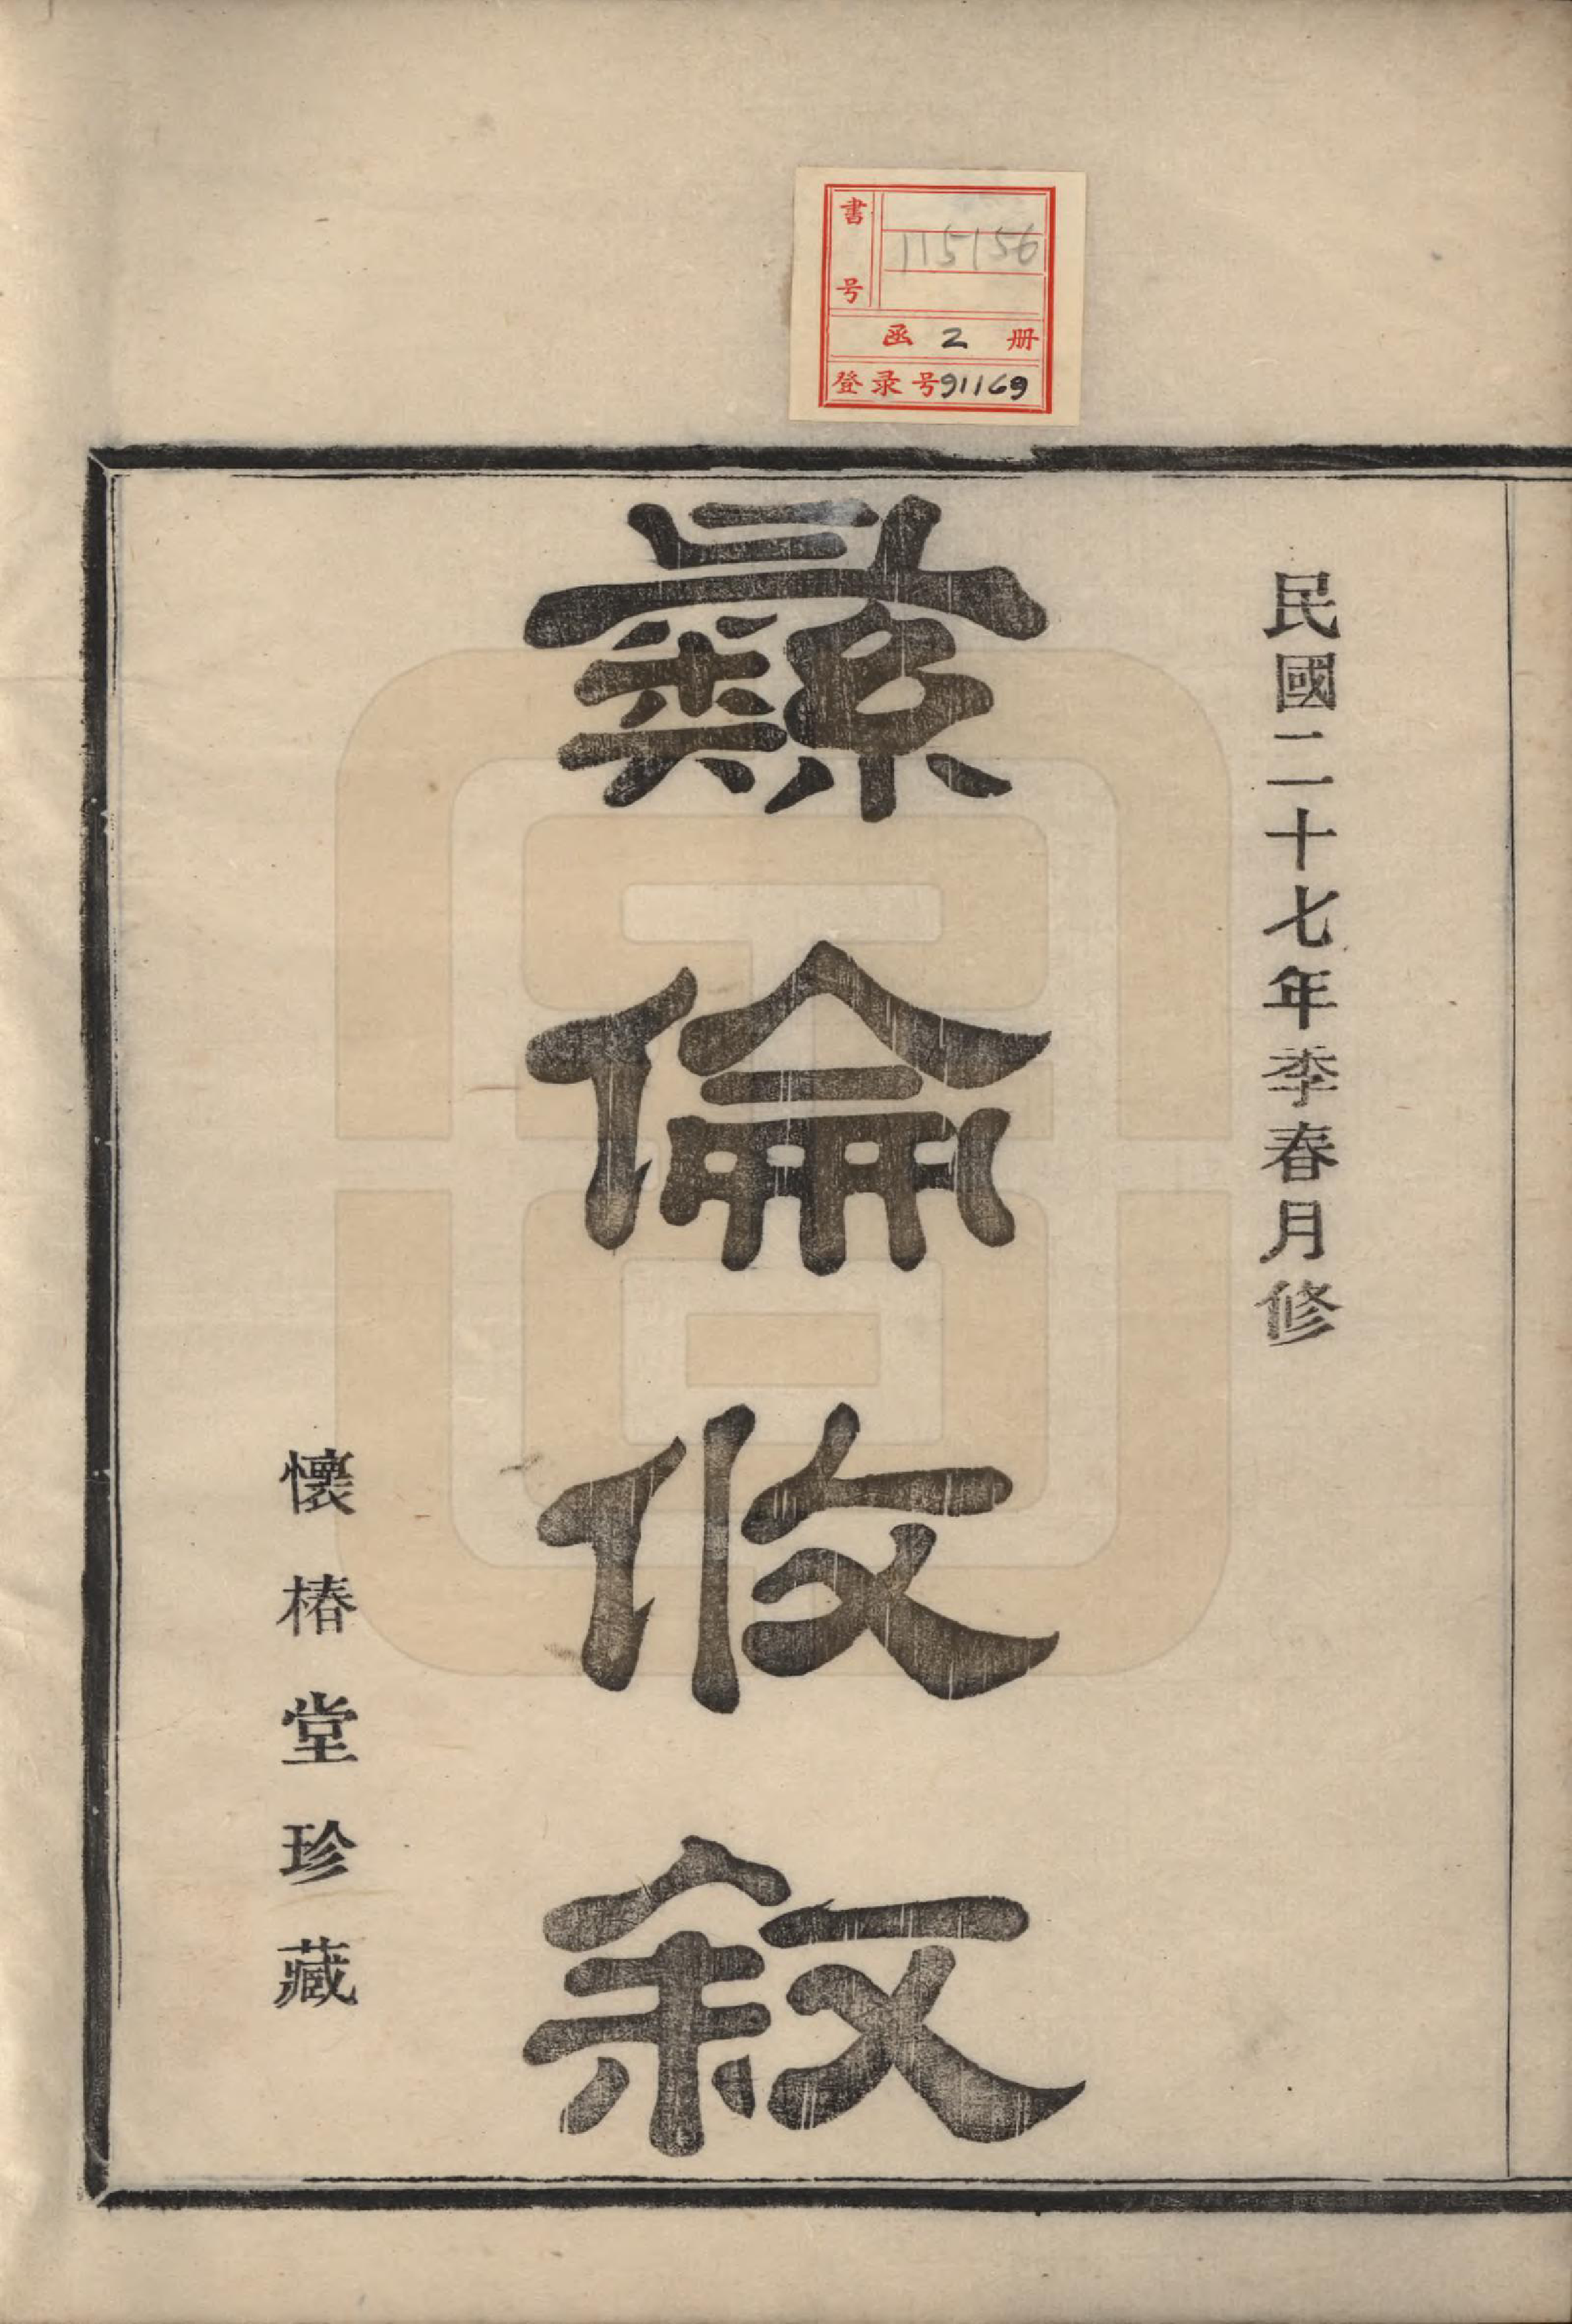 書号 115156
函 2 册
登录号91169
民國二十七年季春月修
彝倫攸叙
懷椿堂珍藏